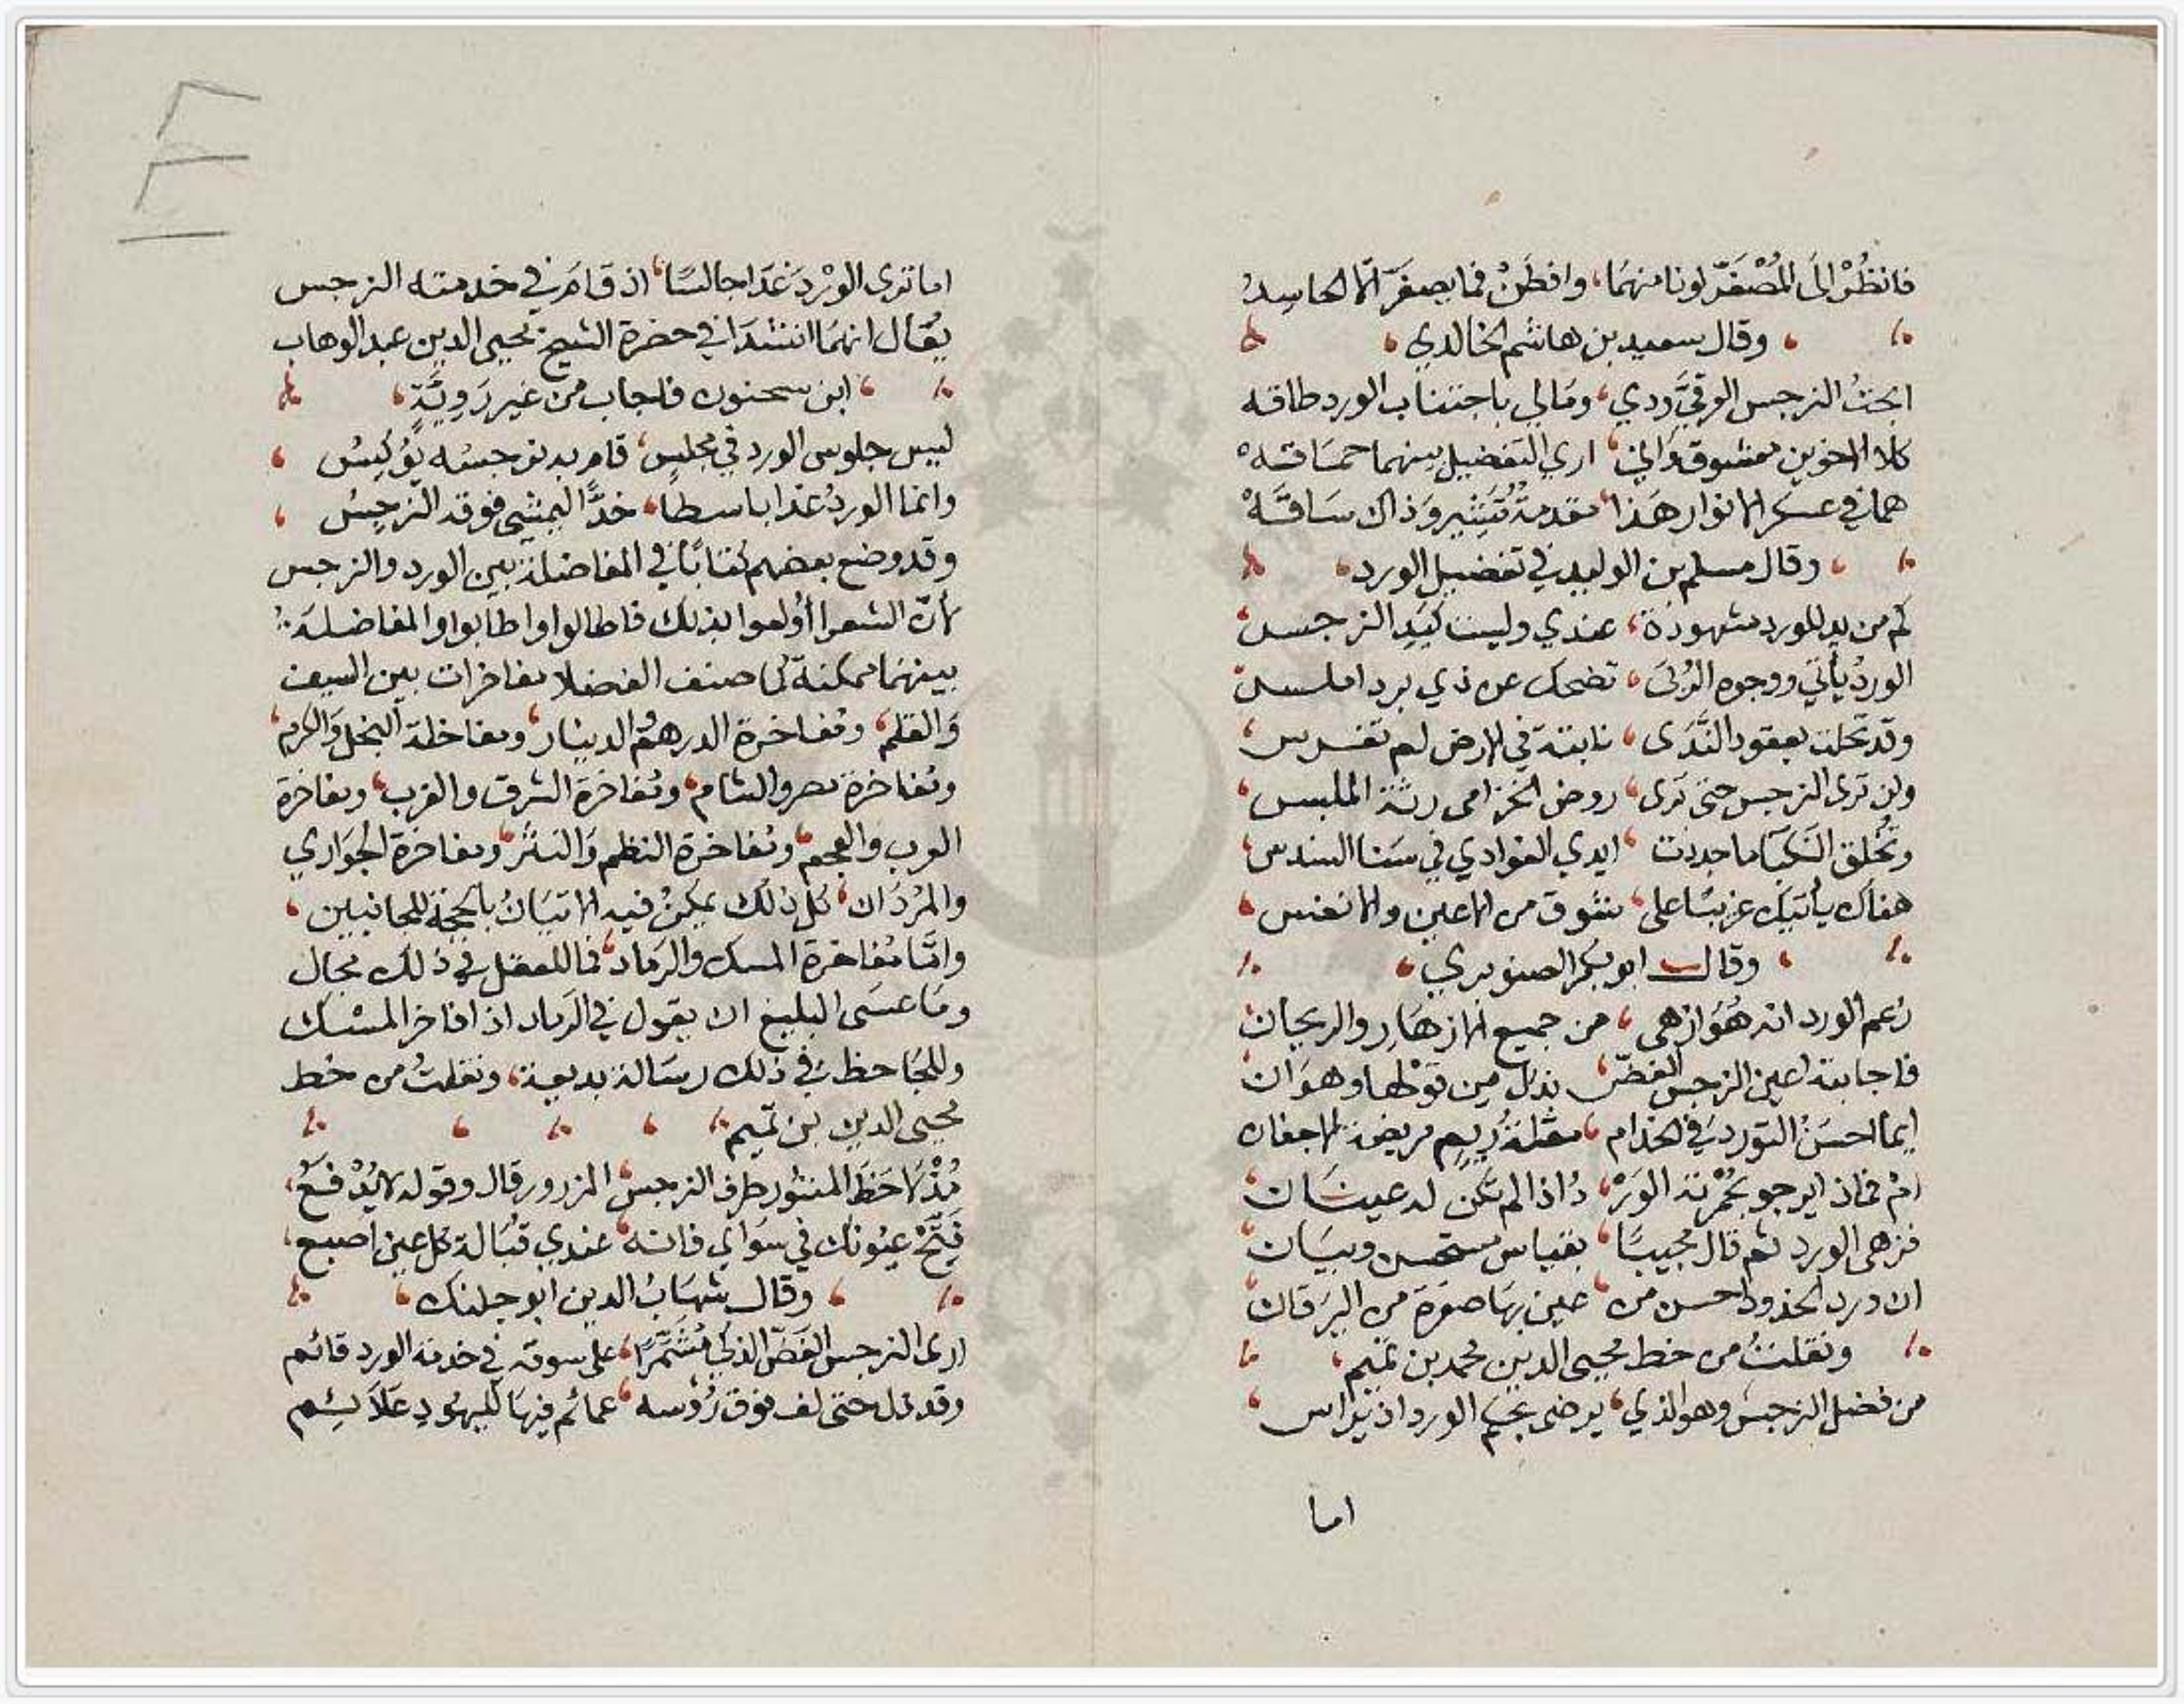 فانظُرْ الى المُصْفَرّ لونا منهمَا، وافطَنْ فما يصفَرّ الا الحاسِدُ
وقال سعيد بن هاشم الخالدي
ابحتُ النرجس الوقيَّ ودي، ومَا لي باجتناب الورد طاقه
كلا الاخوين معشوق وَاني، اري التفضيل بينهما حمَاقَه
هما في عسكر الانوار هَذا، مقدمةٌ تَسِير وَذاك سَاقَهْ
وقال مسلم بن الوليد في تفضيل الورد
كم من يد للورد مشهودَة، عندي وليست كيَدِ النرجس
الوردُ يأتي ووجوه الرُبَى، تضحك عن ذي برد املس
وقد تحلت بعقود النَّدَى، نابتة في الارض لم تغرس
ولن تَرى النرجس حتى تَرى، روض الخزامى رثة الملبس
وتُخلق النَكبَا ما جددت، ايدي الغوادي في سَنا السندس
هناك يأتيك غريبًا على، شوق من الاعين والانفس
وقال ابو بكر الصنوبري
زعم الورد انه هُوَ ازهى، من جميع الازهَارِ والريحان
فاجابته اعين النرجس الغضّ، بذل من قولها وهوَان
ايما احسَنُ التورد في الخد ام، مقلةُ ريمٍ مريضة الاجفان
امْ فماذا يرجو بحُمْرته الوَرْ، دُ اذا لم تكن له عينَان
فزهى الورد ثم قال مجيبًا، بقياس مستحسن وبيَان
ان ورد الخدود احسن من، عين بهَا صفرة من اليَرَقان
ونقلتُ من خط محيي الدين محمد بن تميم
من فضل النرجس وهو الذي، يرضى بحكم الورد اذ يَراس
اما
اما ترى الوردَ غَدَا جالسًا، اذ قامَ في خدمته النرجس
يُقال انهمَا انشدَا في حضرة الشيخ محيي الدين عبد الوهاب
ابن سحنون فاجاب من غير رَويَّةٍ
ليس جلوس الورد في مجلس، قام به نرجسُه يوُكسُ
وانما الوردُ غدا باسطًا، خدًّا ليمشي فوقه النرجِسُ
وقد وضع بعضهم كتابًا في المفاضلة بين الورد والنرجس
لانّ الشعرا أُولعوا بذلك فاطالوا واطابوا والمفاضلَة
بينهمَا ممكنة كما صنف الفضلا مفاخرات بين السيف
وَالقلم، ومُفاخرة الدرهم والدينار، ومفاخلة البخل وَالكرم
ومُفاخرة مصر والشام، ومُفاخرَة الشرق والغرب، ومفاخرة
العرب والعجم، ومُفاخرة النظم وَالنثر، ومفاخرة الجوَاري
والمُردَان، كل ذلك يمكنُ فيه الاتيَانُ بالحجة للجانبين
وامّا مُفاخرة المسك والرَماد، فما للعقل في ذلك مجال
ومَا عسَى البليغ ان يقول في الرَماد اذا فاخر المسْك
وللجَاحظ في ذلك رسَالة بديعة، ونقلتُ من خط
محيى الدين بن تميم
مُذْ لاحَظَ المنثور طرف النرجس، المزرور قال وقوله لا يُدْفَعُ
فَتّحْ عيُونك في سوَاي فانه، عندي قبَالة كل عين اصبع
وقال شهَابُ الدين ابو جلنك
ارى النرجس الغَضّ الذكي مُشَمّرًا، على سوقه في خدمة الورد قائم
وقد ذل حتى لف فوق رُؤسه، عمائم فيهَا لليهُودِ عَلاَئِم